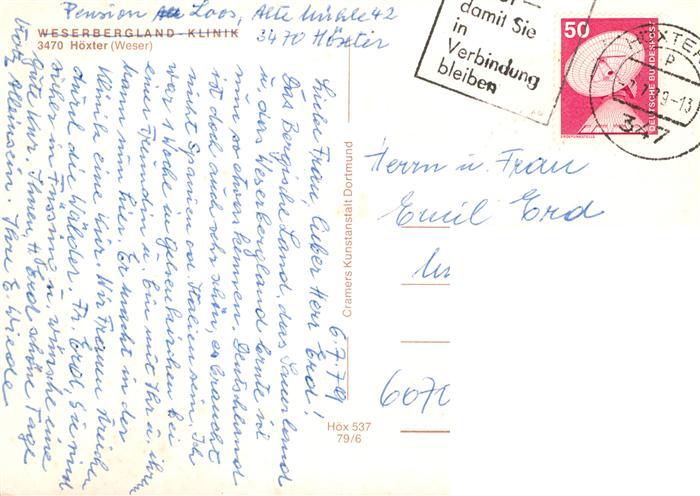 Pension Loos, Alte Mühle 42
3470 Höxter
WESERBERGLAND-KLINIK
3470 Höxter (Weser)
damit Sie
in
Verbindung
bleiben
50
DEUTSCHE BUNDESPOST
ERDEFUNKSTELLE
HÖXTER
347
6.7.79
Liebe Frau, lieber Herr Erd!
Das Bergische Land, das Sauerland
u. das Weserbergland lernte ich
nun so etwas kennen. Deutschland
ist doch auch sehr schön, es braucht
nicht Spanien od. Italien sein. Ich
war 1 Woche in Gelsenkirchen bei
einer Freundin u. bin mit ihr u. ihrem
Mann nun hier. Er macht in der
Klinik eine Kur. Wir Frauen streifen
durch die Wälder. Fr. Erd, Sie sind
sicher in Füssing u. wünsche eine
gute Kur. Ihnen, H. Erd schöne Tage
trotz Alleinsein. Ihre E. Wiede
Cramers Kunstanstalt Dortmund
Höx 537
79/6
Herrn u. Frau
Emil Erd
6070